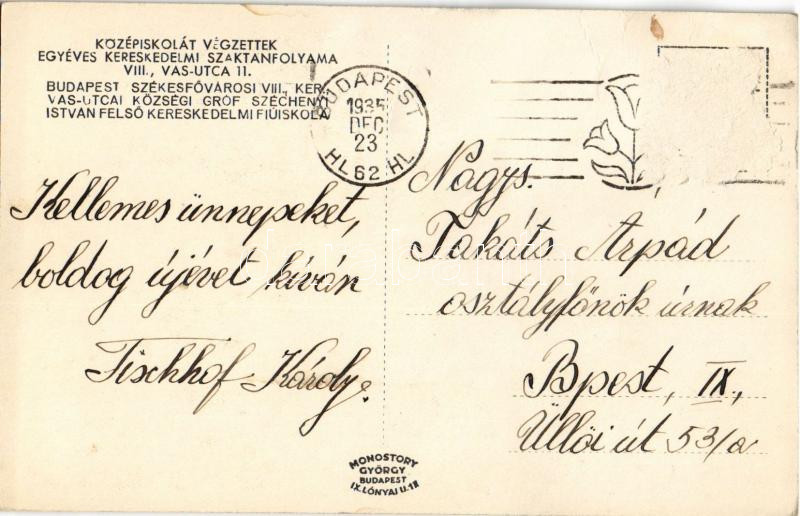 KÖZÉPISKOLÁT VÉGZETTEK
EGYÉVES KERESKEDELMI SZAKTANFOLYAMA
VIII., VAS-UTCA 11.
BUDAPEST SZÉKESFŐVÁROSI VIII., KER.
VAS-UTCAI KÖZSÉGI GRÓF SZÉCHENYI
ISTVÁN FELSŐ KERESKEDELMI FIÚISKOLA
BUDAPEST
1935
DEC
23
HL 62 HL
Kellemes ünnepeket,
boldog újévet kíván
Tischhof Károly.
Nagys.
Takáts Arpád
osztályfőnök úrnak
Bpest, IX.,
Üllői út 53/a
MONOSTORY
GYÖRGY
BUDAPEST
IX. LÓNYAI U. 18